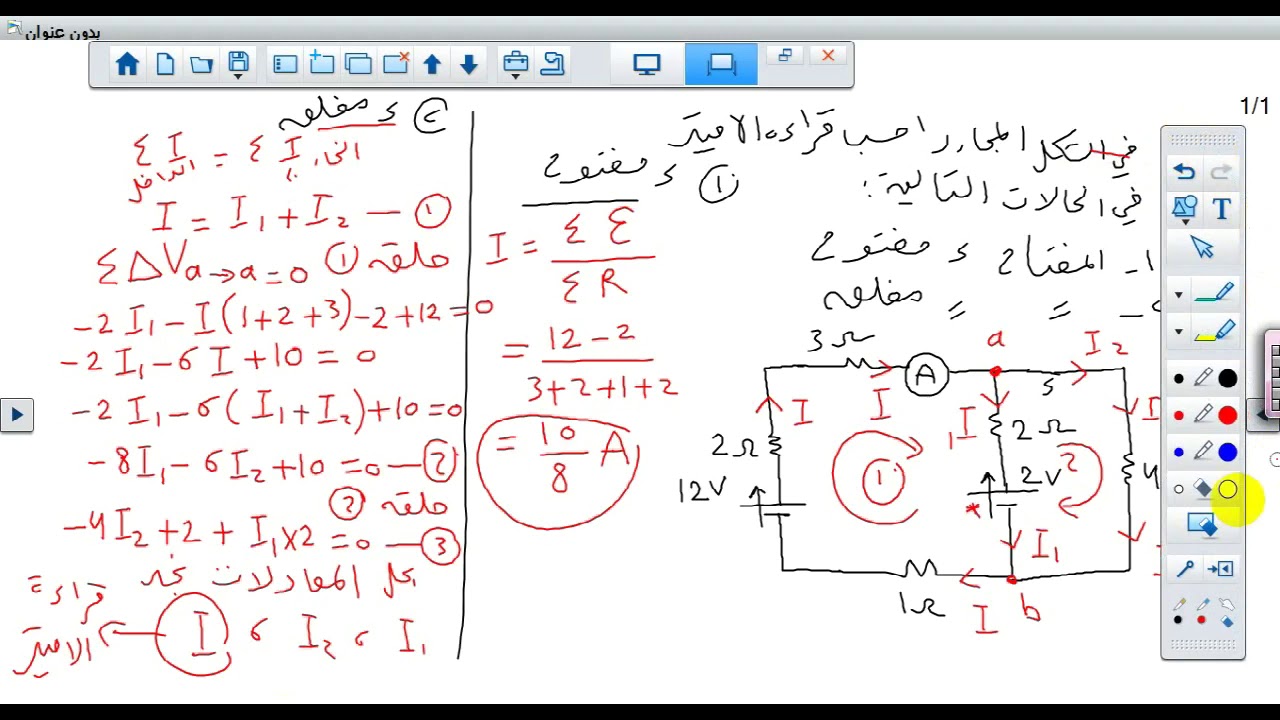 بدون عنوان
1/1
في الشكل المجاور احسب قراءة الاميتر
في الحالات التالية:
1- المفتاح s مفتوح
2- = = مغلق
① s مفتوح
I = ΣƐ / ΣR
= 12-2 / 3+2+1+2
= 10/8 A
② s مغلق
ΣI الداخل = ΣI الخارج
I = I₁ + I₂ — ①
حلقة ① ΣΔVa→a = 0
-2I₁ - I(1+2+3) -2+12 = 0
-2I₁ - 6I + 10 = 0
-2I₁ - 6(I₁+I₂) + 10 = 0
-8I₁ - 6I₂ + 10 = 0 — ②
حلقة ②
-4I₂ + 2 + I₁×2 = 0 — ③
بحل المعادلات نجد
I₁ ، I₂ ، I
قراءة
الاميتر
3Ω
A
a
I₂
I
I
s
2Ω
I₁
2Ω
12V
①
2V
2
4
I₁
1Ω
I
b
T